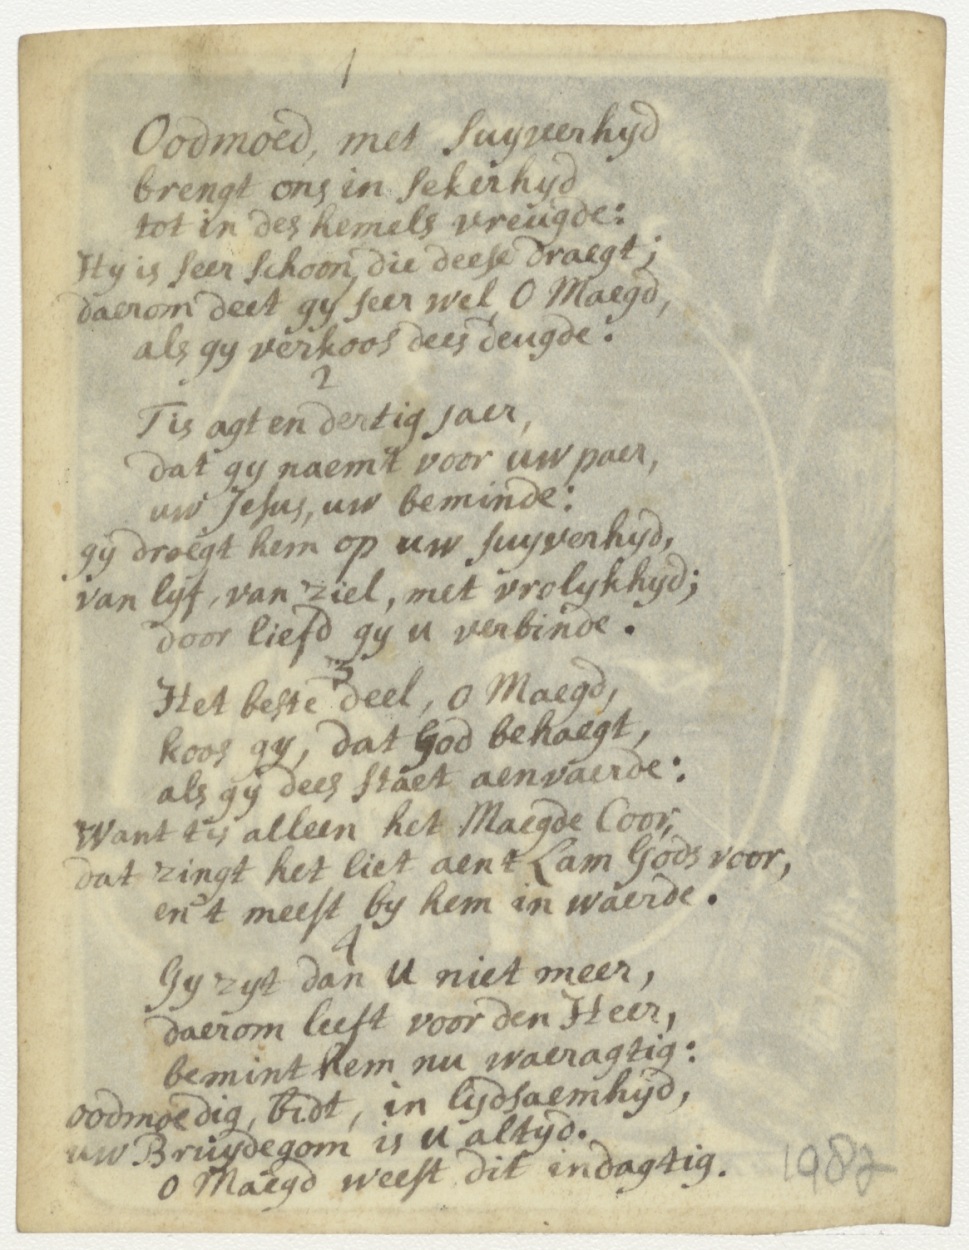 1
Oodmoed, met suyverhyd
brengt ons in sekerhyd
tot in des hemels vreugde:
Hy is seer schoon, die deese draegt;
daerom deet gy seer wel, O Maegd,
als gy verkoos dees deugde:
2
Tis agt en dertig jaer,
dat gy naemt voor uw paer,
uw Jesus, uw beminde:
gy droegt hem op uw suyverhyd,
van lyf, van ziel, met vrolykhyd;
door liefd gy u verbinde.
3
Het beste deel, o Maegd,
koos gy, dat God behaegt,
als gy dees staet aenvaerde:
Want tis alleen het Maegde Coor,
dat zingt het liet aent Lam Gods voor,
en't meest by hem in waerde.
4
Gy zyt dan u niet meer,
daerom leeft voor den Heer,
bemint hem nu waeragtig:
oodmoedig, bidt, in lydsaemhyd,
uw Bruydegom is u altyd.
o Maegd weest dit indagtig.
1982